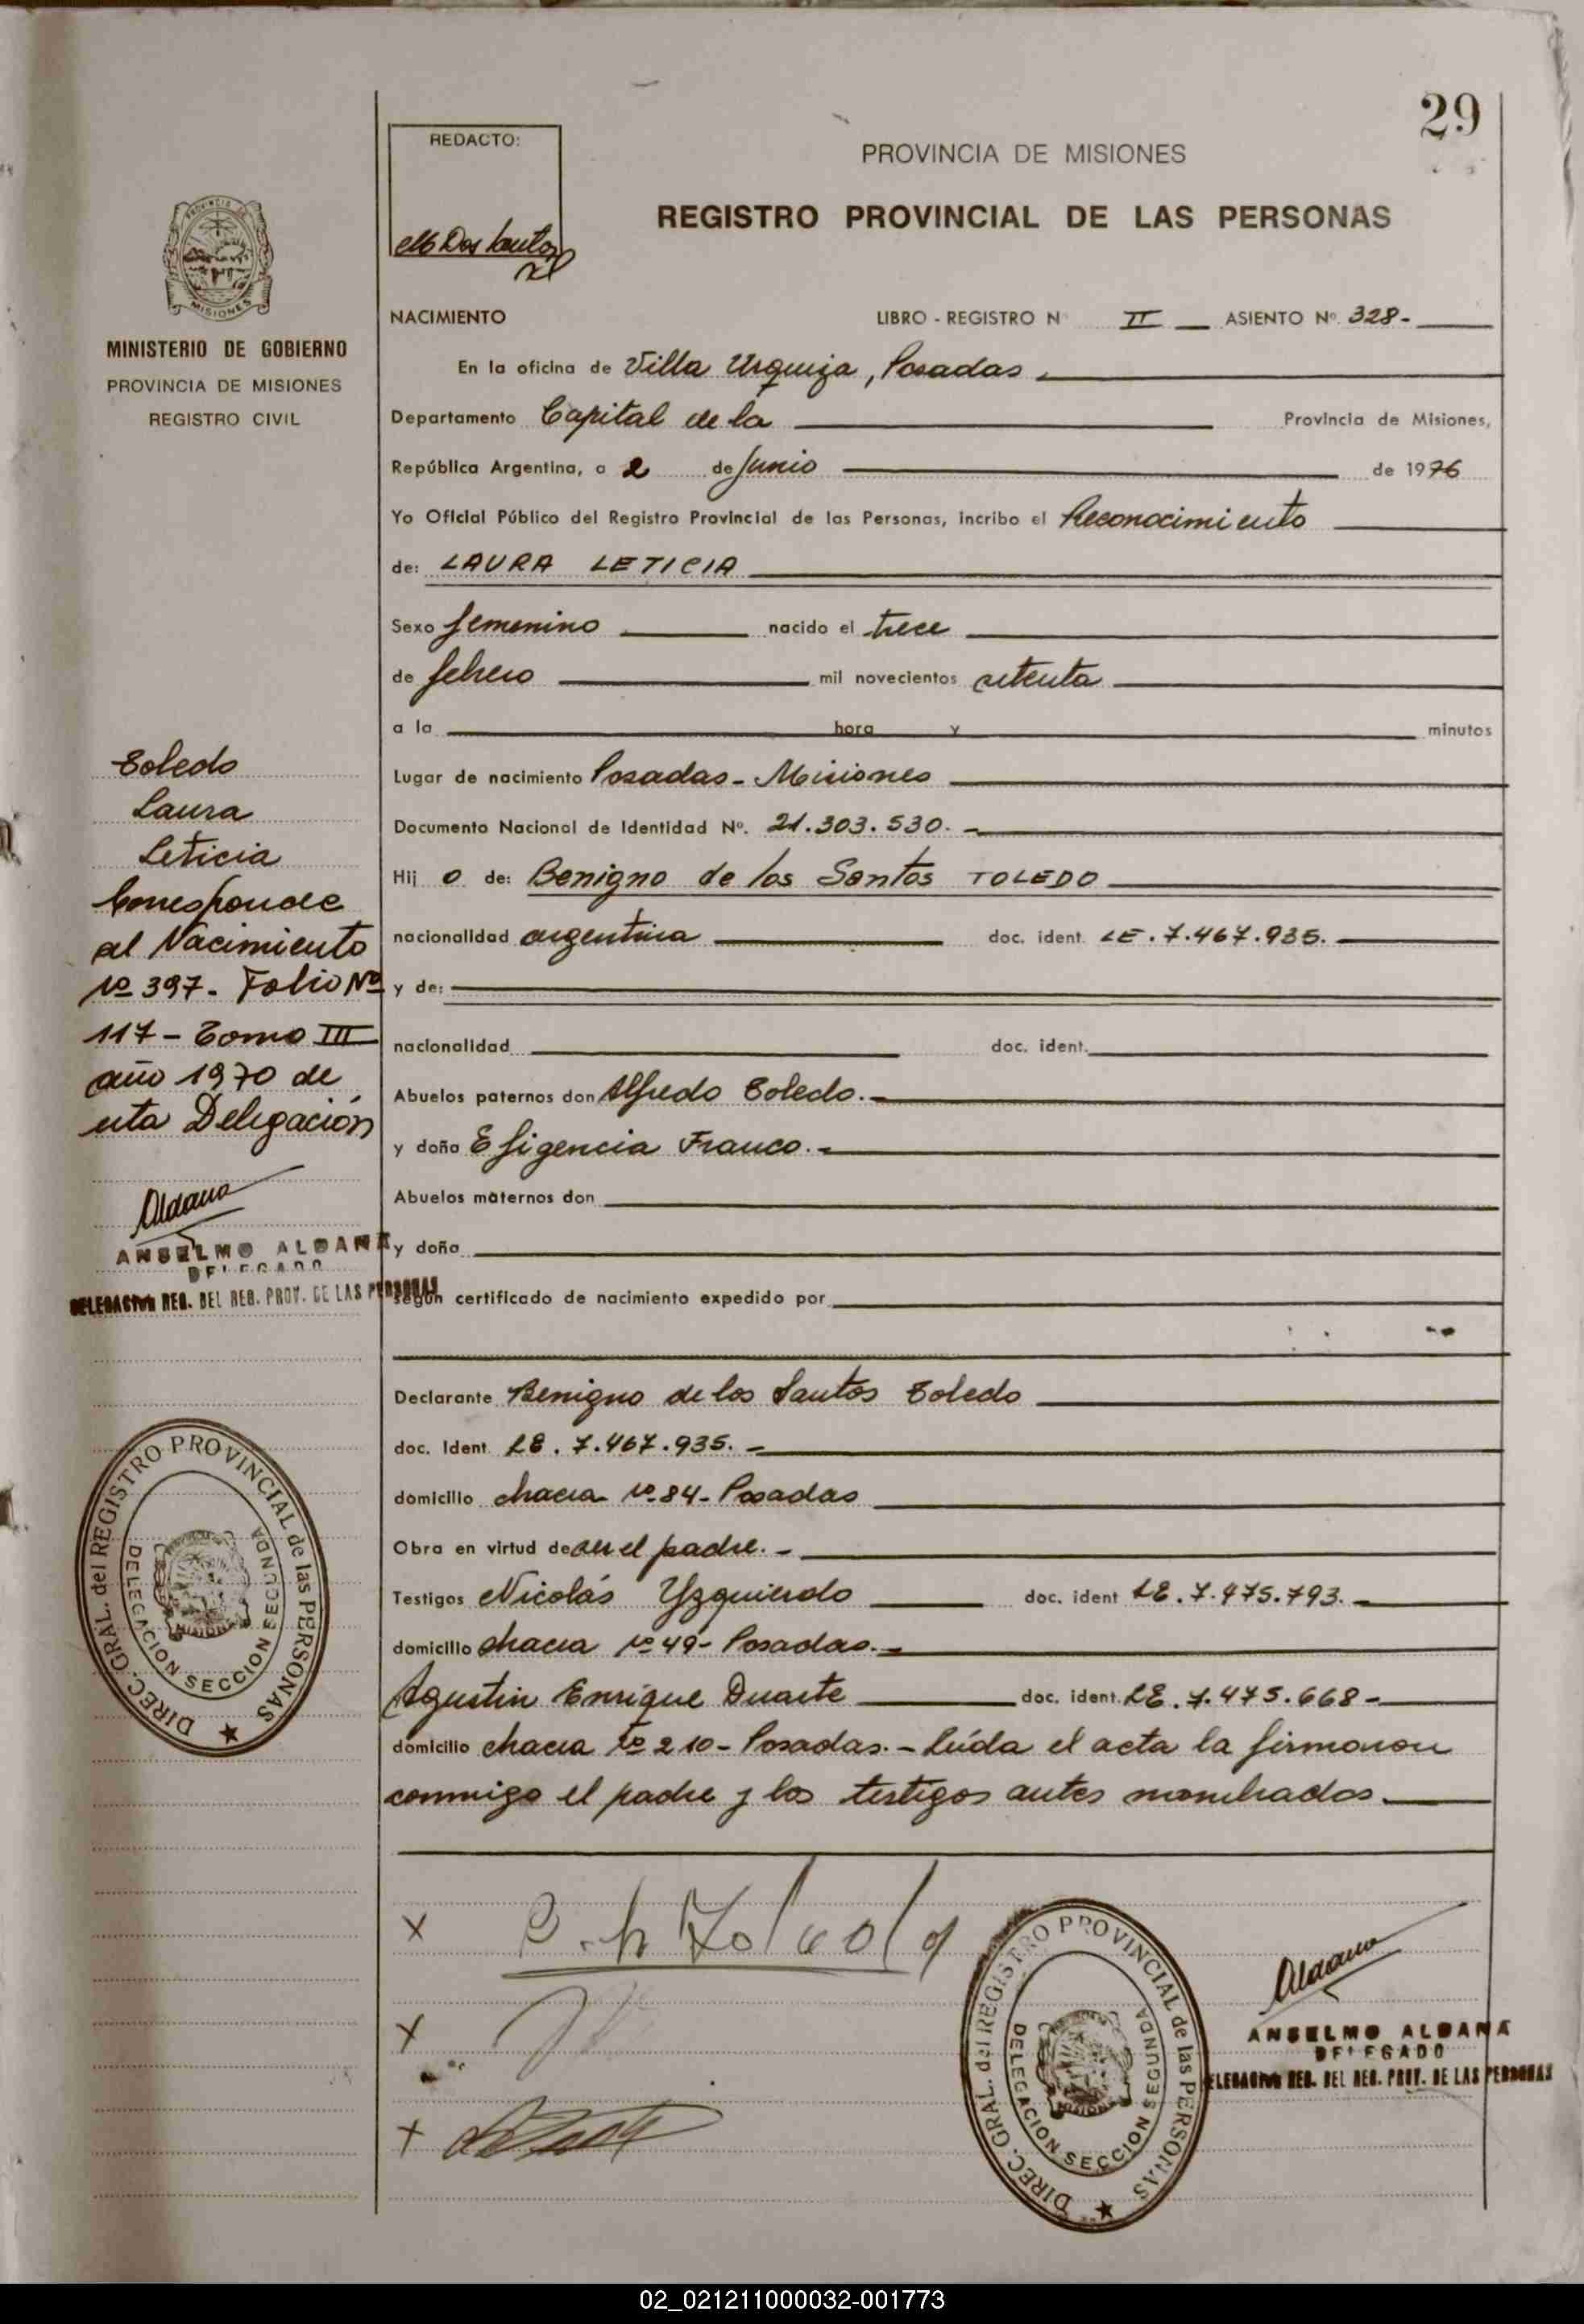 29
REDACTO:
PROVINCIA DE MISIONES
REGISTRO PROVINCIAL DE LAS PERSONAS
Dos Santos
MISIONES
MINISTERIO DE GOBIERNO
PROVINCIA DE MISIONES
REGISTRO CIVIL
NACIMIENTO LIBRO - REGISTRO Nº II ASIENTO Nº 328-
En la oficina de Villa Urquiza, Posadas,
Departamento Capital de la Provincia de Misiones,
República Argentina, a 2 de Junio de 1976
Yo Oficial Público del Registro Provincial de las Personas, incribo el Reconocimiento
de: LAURA LETICIA
Sexo femenino nacido el trece
de febrero mil novecientos setenta
a la hora y minutos
Lugar de nacimiento Posadas - Misiones
Documento Nacional de Identidad Nº. 21.303.530. -
Hij o de: Benigno de los Santos TOLEDO
nacionalidad argentina doc. ident. LE. 7.467.935.
y de:
nacionalidad doc. ident.
Abuelos paternos don Alfredo Toledo. -
y doña Efigencia Franco. -
Abuelos maternos don
y doña
según certificado de nacimiento expedido por
Declarante Benigno de los Santos Toledo
doc. Ident. LE. 7.467.935. -
domicilio chacra Nº 84- Posadas
Obra en virtud de ser el padre. -
Testigos Nicolás Yzquierdo doc. ident LE. 7.475.793. -
domicilio chacra Nº 49- Posadas. -
Agustín Enrique Duarte doc. ident. LE. 7.475.668-
domicilio chacra Nº 210- Posadas. - Leída el acta la firmaron
conmigo el padre y los testigos antes nombrados.
Toledo
Laura
Leticia
Corresponde
al Nacimiento
Nº 397. Folio Nº
117 - Tomo III
año 1970 de
esta Delegación
Aldana
ANSELMO ALDANA
DELEGADO
DELEGACION REG. DEL REG. PROV. DE LAS PERSONAS
DIREC. GRAL. del REGISTRO PROVINCIAL de las PERSONAS
DELEGACION SECCION SEGUNDA
MISIONES
X
X
X
DIREC. GRAL. del REGISTRO PROVINCIAL de las PERSONAS
DELEGACION SECCION SEGUNDA
MISIONES
Aldana
ANSELMO ALDANA
DELEGADO
DELEGACION REG. DEL REG. PROV. DE LAS PERSONAS
02_021211000032-001773